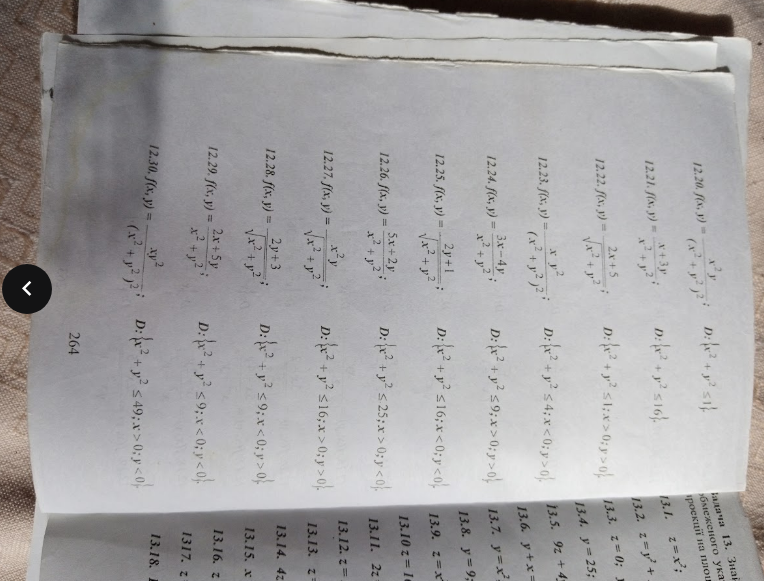 12.20. f(x, y) = x² y / (x² + y²)²; D: {x² + y² ≤ 1}.
12.21. f(x, y) = x + 3y / x² + y²; D: {x² + y² ≤ 16}.
12.22. f(x, y) = 2x + 5 / √x² + y²; D: {x² + y² ≤ 1; x > 0; y > 0}.
12.23. f(x, y) = x y² / (x² + y²)²; D: {x² + y² ≤ 4; x < 0; y > 0}.
12.24. f(x, y) = 3x − 4y / x² + y²; D: {x² + y² ≤ 9; x > 0; y > 0}.
12.25. f(x, y) = 2y + 1 / √x² + y²; D: {x² + y² ≤ 16; x < 0; y < 0}.
12.26. f(x, y) = 5x + 2y / x² + y²; D: {x² + y² ≤ 25; x > 0; y < 0}.
12.27. f(x, y) = x² y / √x² + y²; D: {x² + y² ≤ 16; x > 0; y > 0}.
12.28. f(x, y) = 2y + 3 / √x² + y²; D: {x² + y² ≤ 9; x < 0; y > 0}.
12.29. f(x, y) = 2x + 5y / x² + y²; D: {x² + y² ≤ 9; x < 0; y < 0}.
12.30. f(x, y) = xy² / (x² + y²)²; D: {x² + y² ≤ 49; x > 0; y < 0}.
264
13.
13.1. z = x²;
13.2. z = y² +
13.3. z = 0;
13.4. y = 25;
13.5. 9z +
13.6. y + x =
13.7. y = x²
13.8. y = 9;
13.9. z = x
13.10 z =
13.11. 2z
13.12. z =
13.13. z
13.14. 4z
13.15. x
13.16. z
1317. z
13.18.